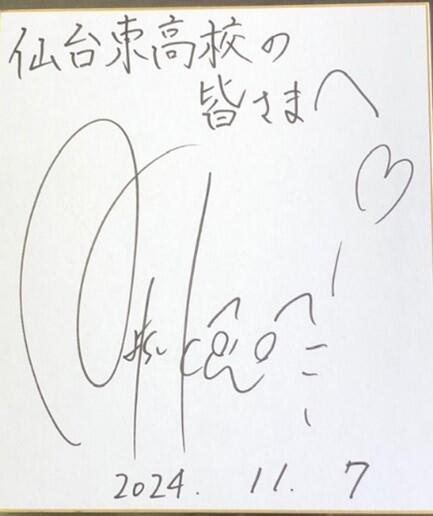 仙台東高校の
皆さまへ
2024. 11. 7